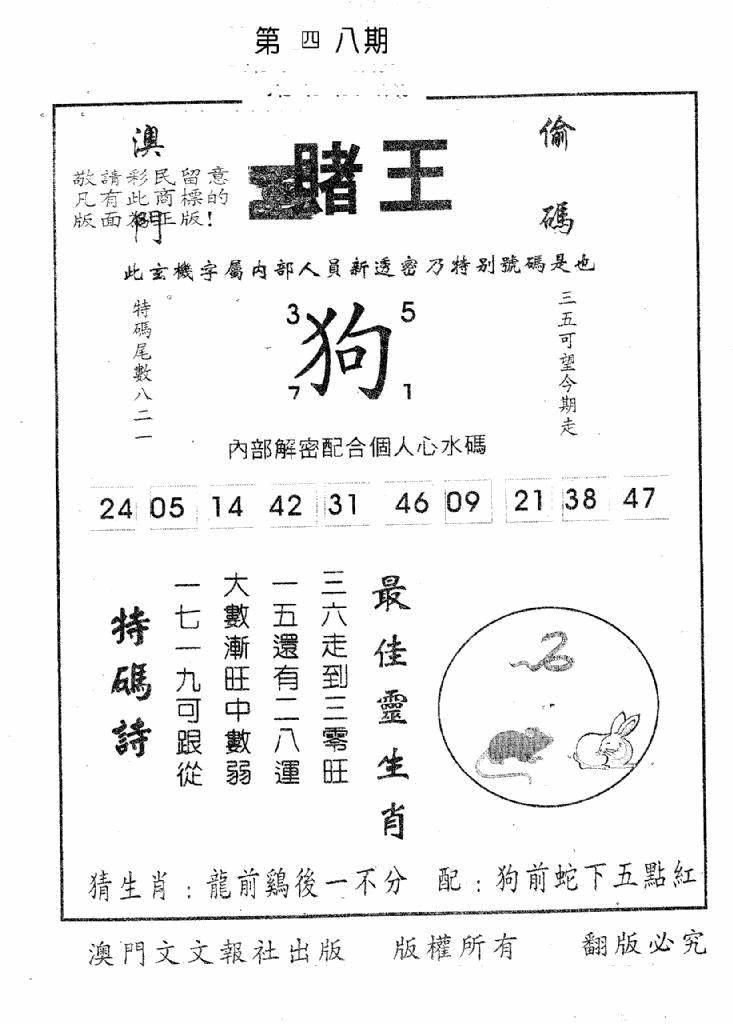 第四八期
澳門
賭王
偷碼
敬請彩民留意
凡有此商標的
版面為正版!
此玄機字屬內部人員新透密乃特别號碼是也。
特碼尾數八二一
3 5
狗
7 1
三五可望今期走
內部解密配合個人心水碼
24 05 14 42 31 46 09 21 38 47
最佳靈生肖
三六走到三零旺
一五還有二八運
大數漸旺中數弱
一七一九可跟從
特碼詩
猜生肖：龍前鷄後一不分 配：狗前蛇下五點紅
澳門文文報社出版 版權所有 翻版必究